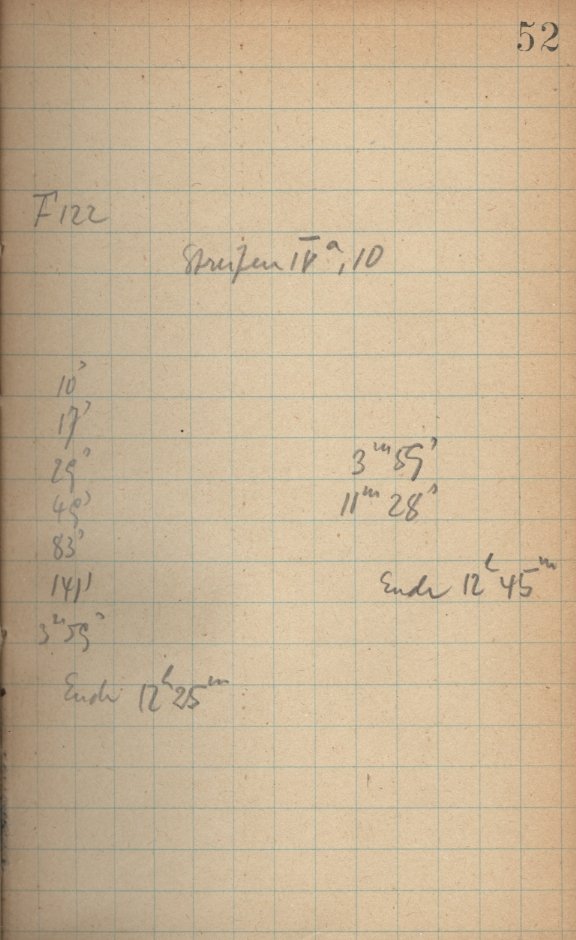 52
F 122
Streifen IV a, 10
10s
17s
29s
49s
83s
141s
3m 59s
Ende 12h 25m
3m 59s
11m 28s
Ende 12h 45m